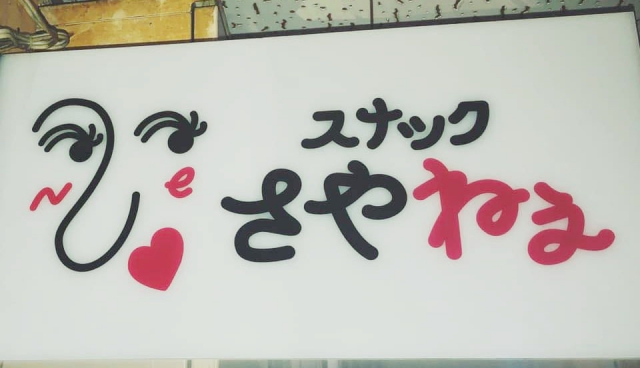 スナック
さやねぇ